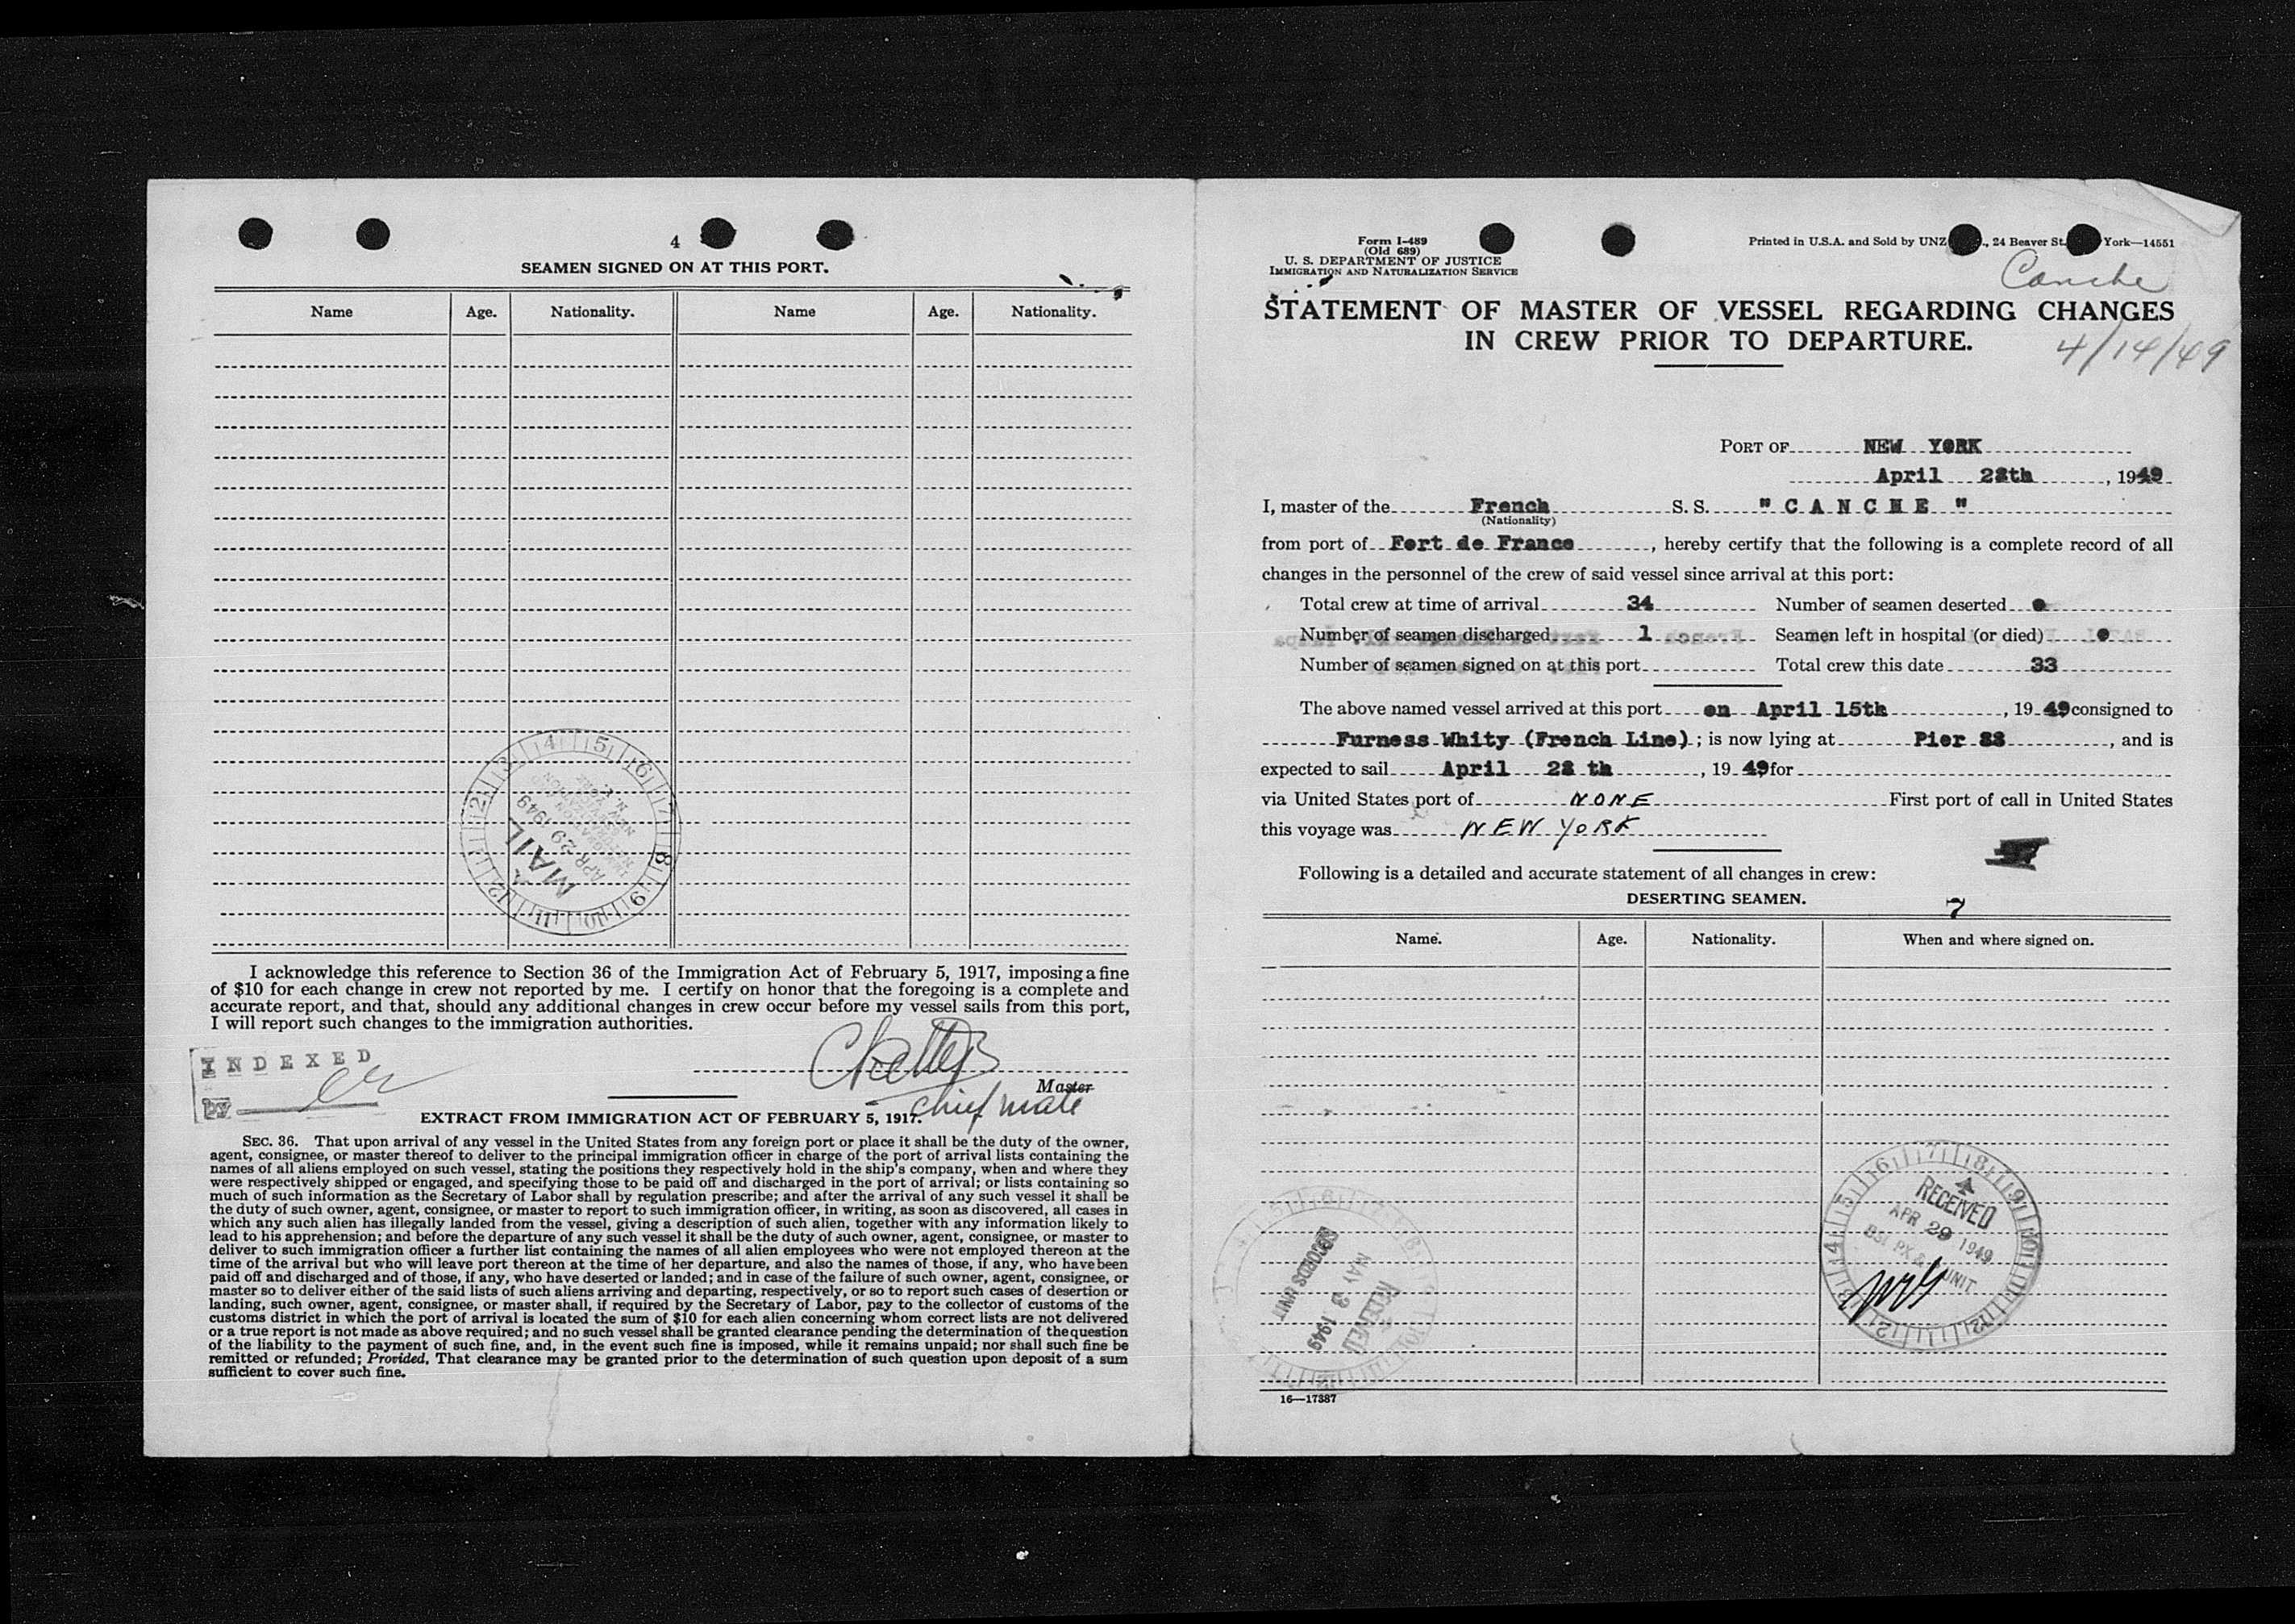 4
SEAMEN SIGNED ON AT THIS PORT.
Name Age. Nationality. Name Age. Nationality.
MAIL
APR 29 1949
I acknowledge this reference to Section 36 of the Immigration Act of February 5, 1917, imposing a fine
of $10 for each change in crew not reported by me. I certify on honor that the foregoing is a complete and
accurate report, and that, should any additional changes in crew occur before my vessel sails from this port,
I will report such changes to the immigration authorities.
INDEXED
BY
Master
chief mate
EXTRACT FROM IMMIGRATION ACT OF FEBRUARY 5, 1917.
SEC. 36. That upon arrival of any vessel in the United States from any foreign port or place it shall be the duty of the owner,
agent, consignee, or master thereof to deliver to the principal immigration officer in charge of the port of arrival lists containing the
names of all aliens employed on such vessel, stating the positions they respectively hold in the ship's company, when and where they
were respectively shipped or engaged, and specifying those to be paid off and discharged in the port of arrival; or lists containing so
much of such information as the Secretary of Labor shall by regulation prescribe; and after the arrival of any such vessel it shall be
the duty of such owner, agent, consignee, or master to report to such immigration officer, in writing, as soon as discovered, all cases in
which any such alien has illegally landed from the vessel, giving a description of such alien, together with any information likely to
lead to his apprehension; and before the departure of any such vessel it shall be the duty of such owner, agent, consignee, or master to
deliver to such immigration officer a further list containing the names of all alien employees who were not employed thereon at the
time of the arrival but who will leave port thereon at the time of her departure, and also the names of those, if any, who have been
paid off and discharged and of those, if any, who have deserted or landed; and in case of the failure of such owner, agent, consignee, or
master so to deliver either of the said lists of such aliens arriving and departing, respectively, or so to report such cases of desertion or
landing, such owner, agent, consignee, or master shall, if required by the Secretary of Labor, pay to the collector of customs of the
customs district in which the port of arrival is located the sum of $10 for each alien concerning whom correct lists are not delivered
or a true report is not made as above required; and no such vessel shall be granted clearance pending the determination of the question
of the liability to the payment of such fine, and, in the event such fine is imposed, while it remains unpaid; nor shall such fine be
remitted or refunded; Provided, That clearance may be granted prior to the determination of such question upon deposit of a sum
sufficient to cover such fine.
Form I-489
(Old 689)
U. S. DEPARTMENT OF JUSTICE
IMMIGRATION AND NATURALIZATION SERVICE
Printed in U.S.A. and Sold by UNZ ., 24 Beaver St. York—14551
Canche
STATEMENT OF MASTER OF VESSEL REGARDING CHANGES
IN CREW PRIOR TO DEPARTURE.
4/14/49
PORT OF NEW YORK
April 28th, 1949
I, master of the French S. S. " C A N C H E "
(Nationality)
from port of Fort de France, hereby certify that the following is a complete record of all
changes in the personnel of the crew of said vessel since arrival at this port:
Total crew at time of arrival 34 Number of seamen deserted 0
Number of seamen discharged 1 Seamen left in hospital (or died) 0
Number of seamen signed on at this port Total crew this date 33
The above named vessel arrived at this port on April 15th, 1949 consigned to
Furness Whity (French Line); is now lying at Pier 88, and is
expected to sail April 28 th, 1949 for
via United States port of NONE First port of call in United States
this voyage was NEW YORK
Following is a detailed and accurate statement of all changes in crew:
DESERTING SEAMEN.
7
Name. Age. Nationality. When and where signed on.
RECEIVED
APR 29 1949
UNIT
RECEIVED
MAY 3 1949
RECORDS UNIT
16—17387